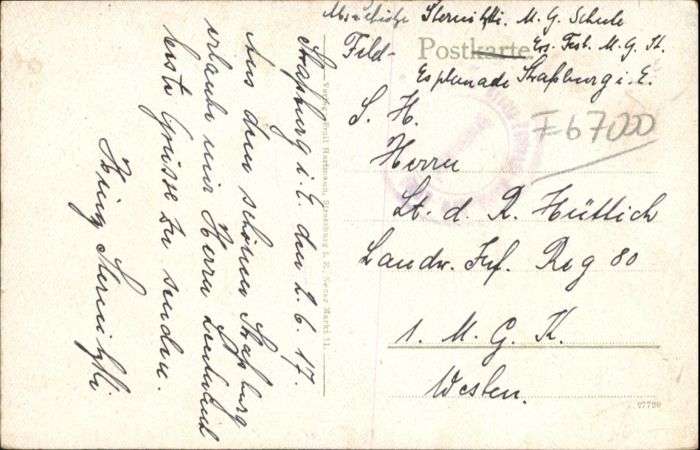 Absender Sternitzki. M. G. Schule
Ers. Fest. M. G. K.
Feld-
Postkarte
Esplanade Straßburg i. E.
F67000
S. H.
Herrn
Lt. d. R. Hüttich
Landw. Inf. Reg 80
1. M. G. K.
Westen.
Straßburg i. E. den 2. 6. 17.
Aus dem schönen Straßburg
erlaube mir Herrn Leutnant
beste Grüsse zu senden.
Sternitzki
Verlag Emil Hartmann, Strassburg i. E. Neuer Markt 11.